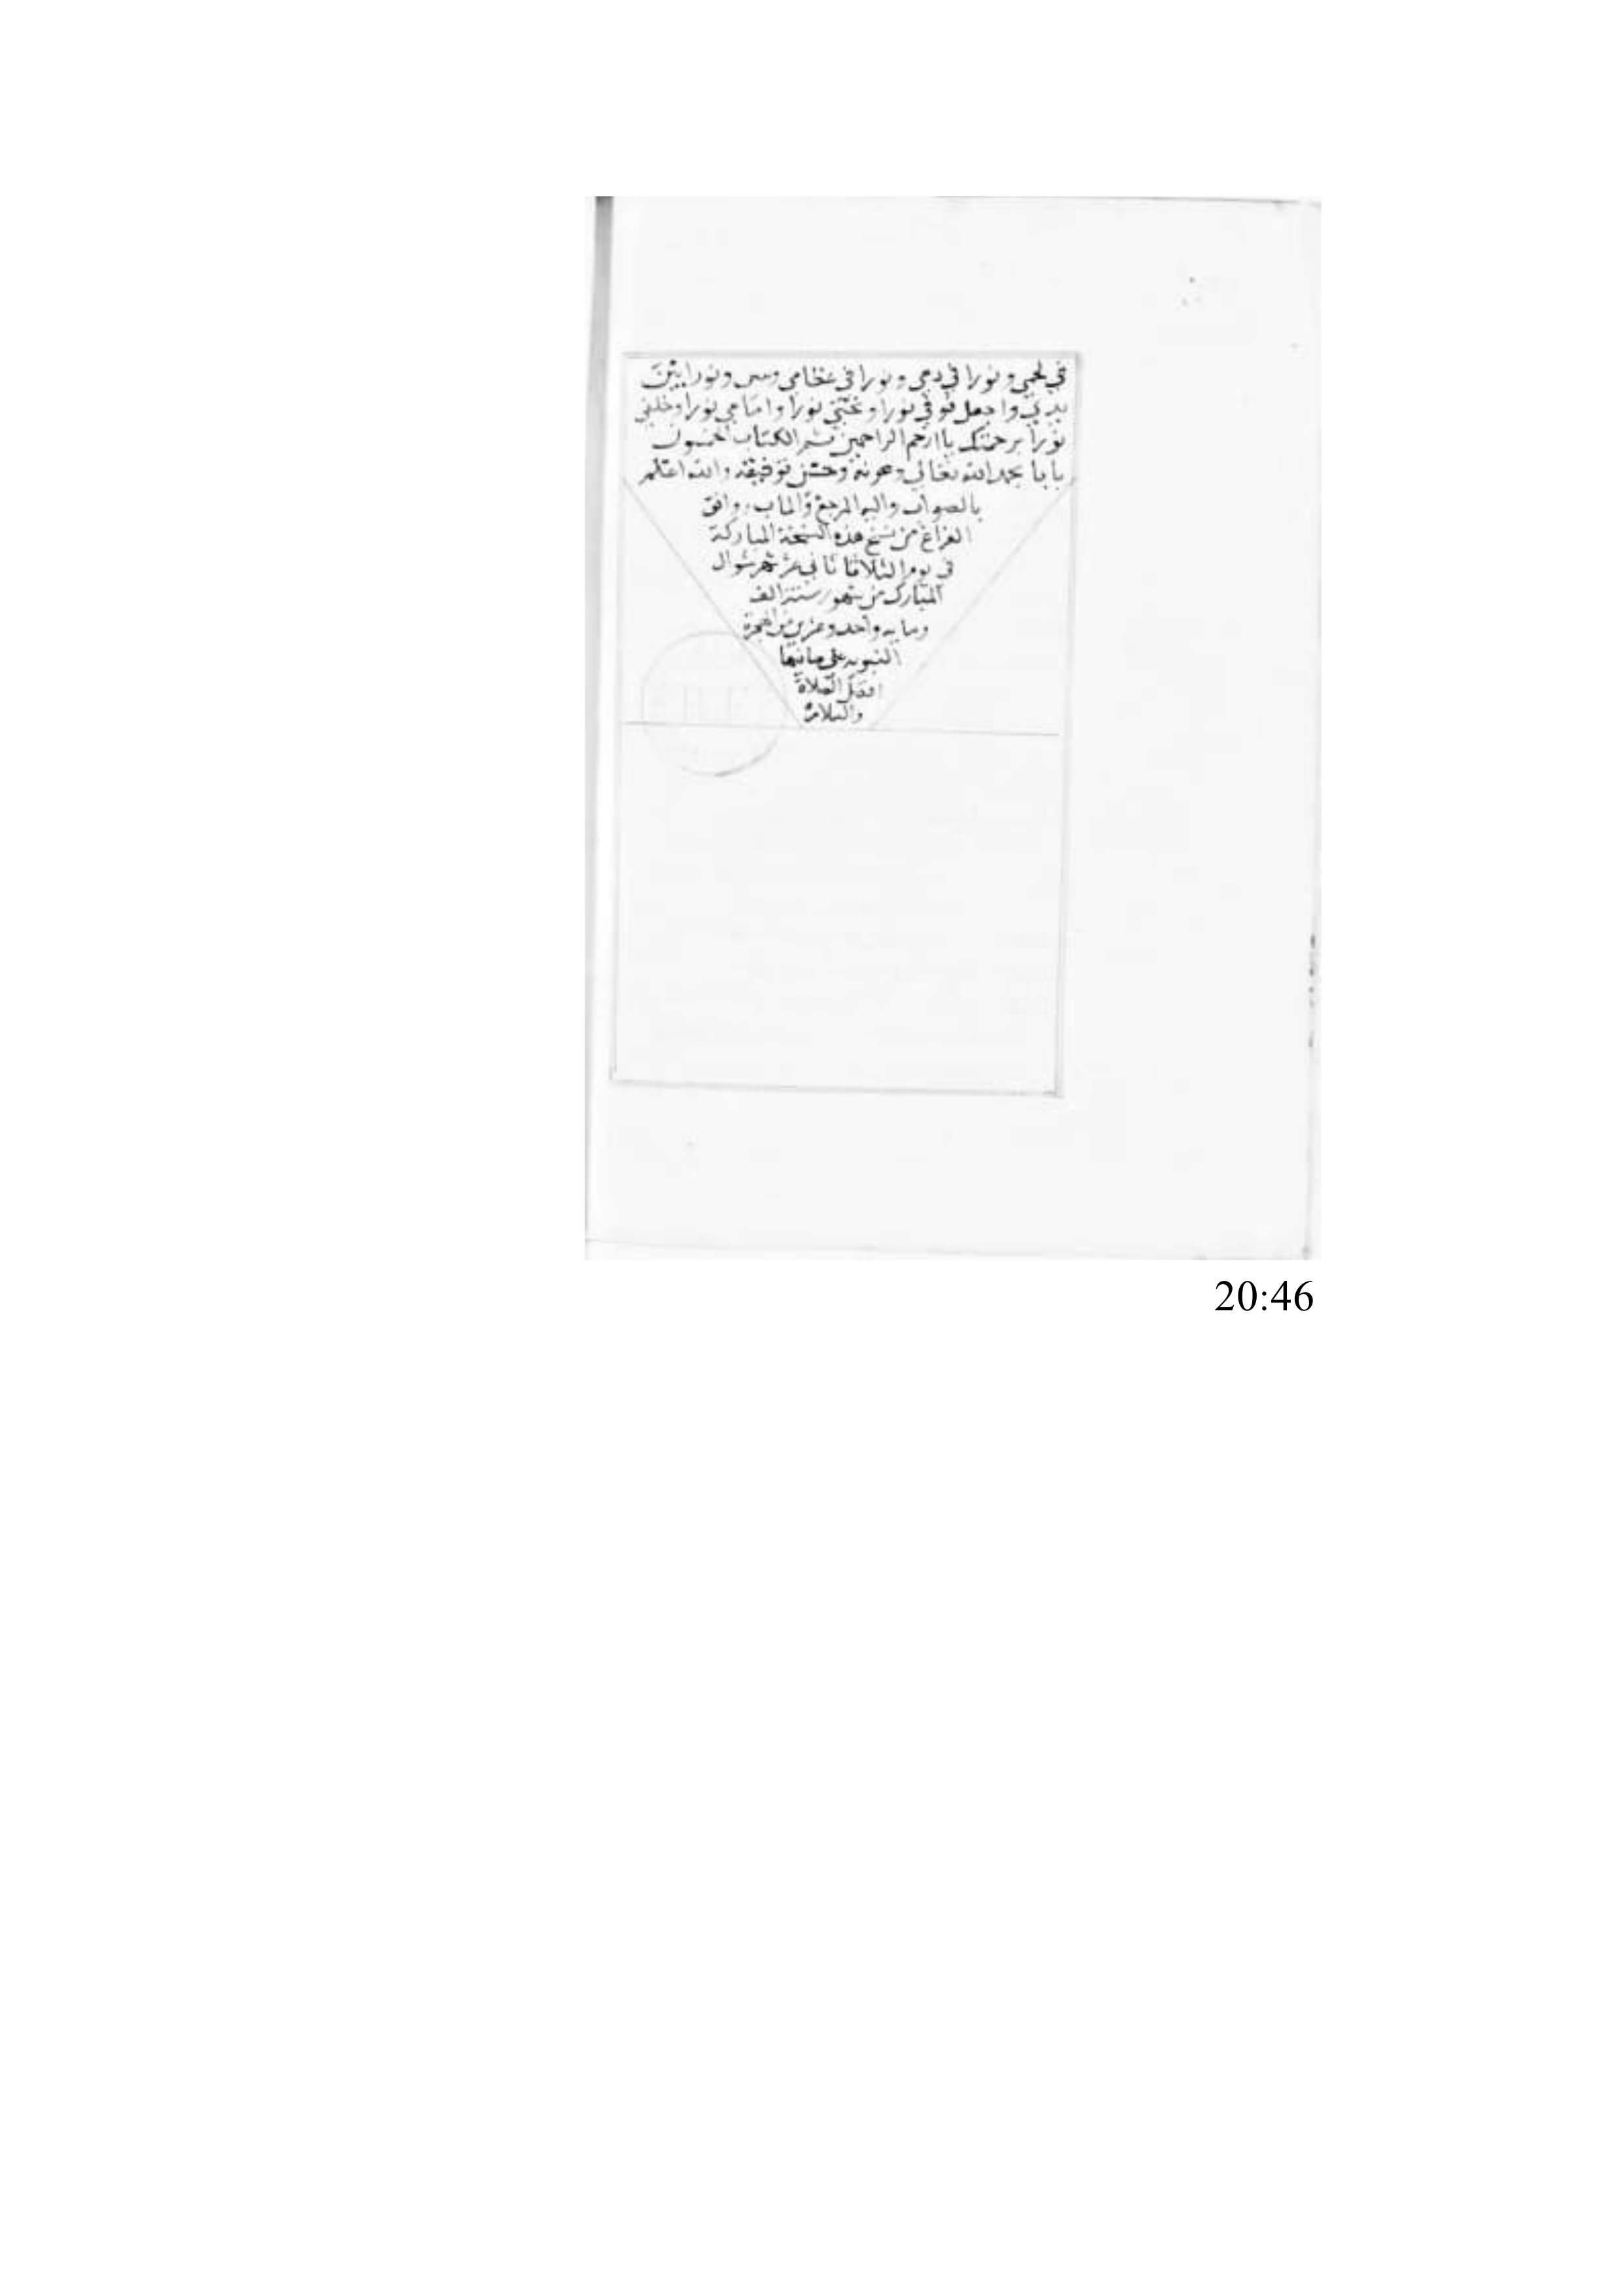 في لحمي ونورا في دمي ونورا في عظامي ونورا بين
يدي واجعل فوقي نورا وتحتي نورا وامامي نورا وخلفي
نورا برحمتك يا ارحم الراحمين تم الكتاب خمسون
بابا بحمد الله تعالي وعونه وحسن توفيقه والله اعلم
بالصواب واليه المرجع والماب ووافق
الفراغ من نسخ هذه النسخة المباركة
في يوم الثلاثا ثاني عشر شهر شوال
المبارك من شهور سنة الف
ومايه واحد وعشرين من الهجرة
النبويه علي صاحبها
افضل الصلاة
والسلام
20:46